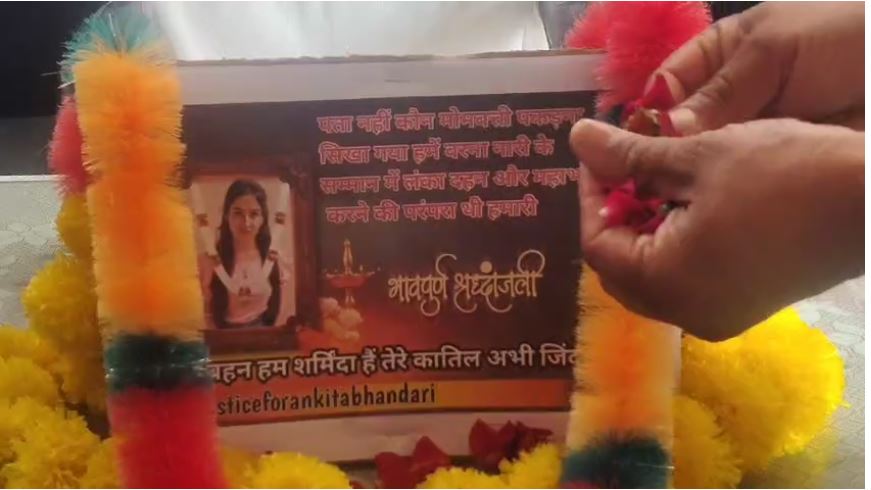 पता नहीं कौन मोमबत्ती पकड़ना
सिखा गया हमें वरना नारी के
सम्मान में लंका दहन और महाभ
करने की परंपरा थी हमारी
भावपूर्ण श्रध्दांजली
बहन हम शर्मिंदा हैं तेरे कातिल अभी जिंद
sticeforankitabhandari